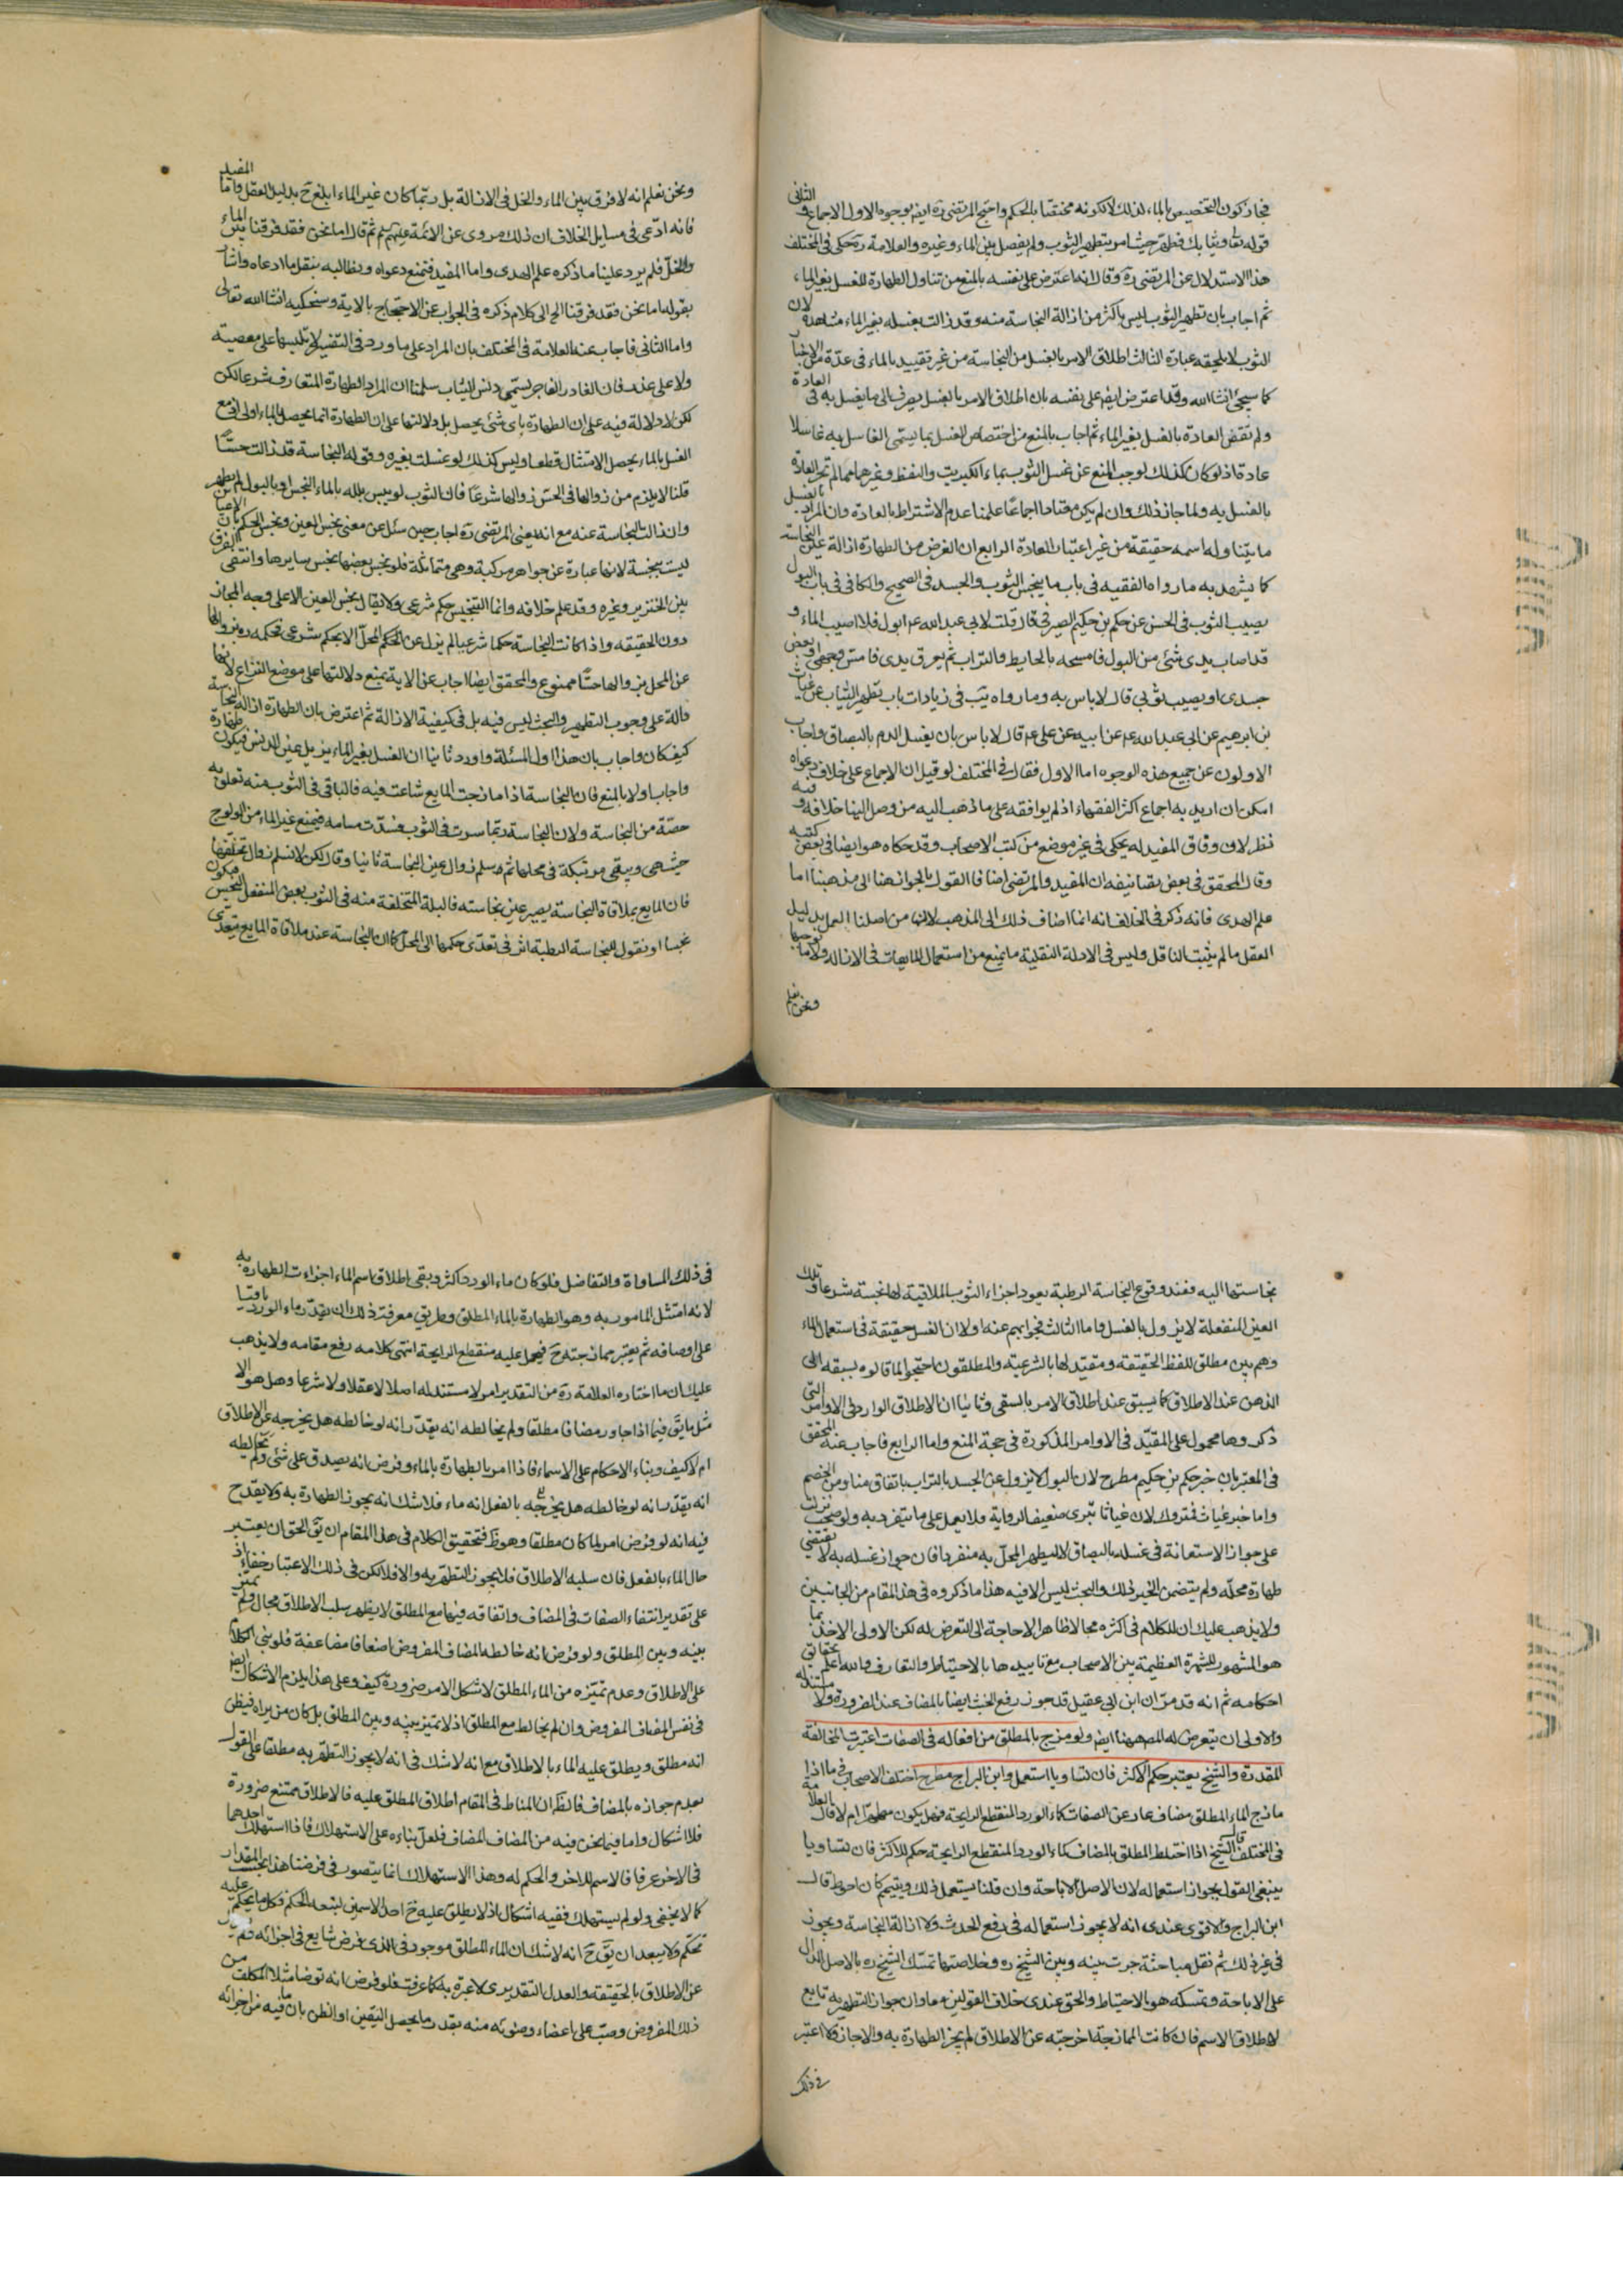 فجاز كون التخصيص بالماء لذلك لا لكونه مختصا بالحكم واحتج المرتضى ره ايضا بوجوه الاول الاجماع و الثانى
قوله تعا وثيابك فطهر حيث امر بتطهير الثوب ولم يفصل بين الماء وغيره والعلامة ره حكى فى المختلف
هذا الاستدلال عن المرتضى ره وقال انه اعترض على نفسه بالمنع من تناول الطهارة للغسل بغير الماء
ثم اجاب بان تطهير الثوب ليس باكثر من ازالة النجاسة منه وقد زالت بغسله بغير الماء مشاهدة لان
الثوب لا يلحقه عبادة الثالث اطلاق الامر بالغسل من النجاسة من غير تقييد بالماء فى عدة من الاخبار
كما سيجئ انشاء الله وقد اعترض ايضا على نفسه بان اطلاق الامر بالغسل ينصرف الى ما يغسل به فى العادة
ولم تقض العادة بالغسل بغير الماء ثم اجاب بالمنع من اختصاص الغسل بما يسمى الغاسل به غاسلا
عادة اذ لو كان كذلك لوجب المنع عن غسل الثوب بماء الكبريت والنفط وغيرهما مما لم تجر العادة
بالغسل به ولما جاز ذلك وان لم يكن معتادا اجماعا علمنا عدم الاشتراط بالعادة وان المراد بالغسل
ما يتناوله اسمه حقيقة من غير اعتبار العادة الرابع ان الغرض من الطهارة ازالة عين النجاسة
كما يشهد به ما رواه الفقيه فى باب ما ينجس الثوب والجسد فى الصحيح والكافى فى باب البول
يصيب الثوب فى الحسن عن حكم بن حكيم الصيرفى قال قلت لابى عبد الله ع ابول فلا اصيب الماء و
قد اصاب يدى شئ من البول فامسحه بالحايط والتراب ثم يعرق يدى فامس وجهى او بعض
جسدى او يصيب ثوبى قال لا باس به وما رواه يب فى زيادات باب تطهير الثياب عن غياث
بن ابرهيم عن ابى عبد الله ع عن ابيه عن على ع قال لا باس بان يغسل الدم بالبصاق واجاب
الاولون عن جميع هذه الوجوه اما الاول فقال فى المختلف لو قيل ان الاجماع على خلاف دعواه
امكن ان اريد به اجماع اكثر الفقهاء اذ لم يوافقه على ما ذهب اليه من وصل الينا خلافه و فيه
نظر لان وفاق المفيد له يحكى فى غير موضع من كتب الاصحاب وقد حكاه هو ايضا فى بعض كتبه
وقال المحقق فى بعض تصانيفه ان المفيد والمرتضى اضافا القول بالجواز هنا الى مذهبنا اما
علم الهدى فانه ذكر فى الخلاف انه انما اضاف ذلك الى المذهب لان من اصلنا العمل بدليل
العقل ما لم يثبت الناقل وليس فى الادلة النقلية ما يمنع من استعمال المايعات فى الازالة ولا ما يوجبها
ونحن نعلم
ونحن نعلم انه لا فرق بين الماء والخل فى الازالة بل ربما كان غير الماء ابلغ ح بدليل العقل واما المفيد
فانه ادعى فى مسايل الخلاف ان ذلك مروى عن الائمة عليهم ثم قال اما نحن فقد فرقنا بين الماء
والخل فلم يرد علينا ما ذكره علم الهدى واما المفيد فنمنع دعواه ونطالبه بنقل ما ادعاه واشار
بقوله اما نحن فقد فرقنا الخ الى كلام ذكره فى الجواب عن الاحتجاج بالاية وسنحكيه انشاء الله تعالى
واما الثانى فاجاب عنه العلامة فى المختلف بان المراد على ما ورد فى التفسير لا تلبسها على معصية
ولا على غدر فان الغادر الفاجر يسمى دنس الثياب سلمنا ان المراد الطهارة المتعارف شرعا لكن
لكن لا دلالة فيه على ان الطهارة باى شئ يحصل بل دلالتها على ان الطهارة انما يحصل بالماء اولى اذ مع
الغسل بالماء يحصل الامتثال قطعا وليس كذلك لو غسلت بغيره وقوله النجاسة قد زالت حسا
قلنا لا يلزم من زوالها فى الحس زوالها شرعا فان الثوب لو يبس بلله بالماء النجس او بالبول لم يطهر
وان زالت النجاسة عنه مع انه يعنى المرتضى ره اجاب حين سئل عن معنى نجس العين ونجس الحكم بان الاعيان
ليست بنجسة لانها عبارة عن جواهر مركبة وهى متماثلة فلو نجس بعضها نجس سايرها وانتفى الفرق
بين الخنزير وغيره وقد علم خلافه وانما التنجيس حكم شرعى ولا يقال نجس العين الا على وجه المجاز
دون الحقيقه واذا كانت النجاسة حكما شرعيا لم يزل عن الحكم المحل الا بحكم شرعى فحكمه ره بزوالها
عن المحل بزوالها حسا ممنوع والمحقق ايضا اجاب عن الاية بمنع دلالتها على موضع النزاع لانها
دالة على وجوب التطهير والبحث ليس فيه بل فى كيفية الازالة ثم اعترض بان الطهارة ازالة النجاسة
كيف كان واجاب بان هذا اول المسئلة واورد ثانيا ان الغسل بغير الماء يزيل عين الدنس فيكون طهارة
واجاب اولا بالمنع فان النجاسة اذا مازجت المايع شاعت فيه فالباقى فى الثوب منه تعلق به
حصة من النجاسة ولان النجاسة ربما سرت فى الثوب فسدت مسامه فيمنع غير الماء من الولوج
حيث هى ويبقى مرتبكة فى محلها ثم وسلم زوال عين النجاسة ثانيا وقال لكن لا نسلم زوال تخلفها
فان المايع بملاقاة النجاسة يصير عين نجاسته فالبلة المتخلفة منه فى الثوب بعض المنفعل النجس فيكون
نجسا او نقول للنجاسة الرطبة اثر فى تعدى حكمها الى المحل كما ان النجاسة عند ملاقاة المايع يتعدى
نجاستها اليه فعند وقوع النجاسة الرطبة يعود اجزاء الثوب الملاقية لها نجسة شرعا و تلك
العين المنفعلة لا يزول بالغسل واما الثالث فجوابهم عنه اولا ان الغسل حقيقة فى استعمال الماء
وهم بين مطلق للفظ الحقيقة ومقيد لها بالشرعية والمطلقون احتجوا لما قالوه بسبقه الى
الذهن عند الاطلاق كما يسبق عند اطلاق الامر بالسقى وثانيا ان الاطلاق الوارد فى الاوامر التى
ذكروها محمول على المقيد فى الاوامر المذكورة فى حجة المنع واما الرابع فاجاب عنه المحقق
فى المعتبر بان خبر حكم بن حكيم مطرح لان البول لا يزول عن الجسد بالتراب باتفاق منا ومن الخصم
واما خبر غياث فمتروك لان غياثا بترى ضعيف الرواية فلا يعمل على ما يتفرد به ولو صحت نزلت
على جواز الاستعانة فى غسله بالبصاق لا ليطهر المحل به منفردا فان جواز غسله به لا يقتضى
طهارة محله ولم يتضمن الخبر ذلك والبحث ليس الا فيه هذا ما ذكروه فى هذا المقام من الجانبين
ولا يذهب عليك ان للكلام فى اكثره مجالا ظاهرا لا حاجة الى التعرض له لكن الاولى الاخذ بما
هو المشهور للشهرة العظيمة بين الاصحاب مع تاييدها بالاحتياط والتعارف والله اعلم بحقائق
احكامه ثم انه قد مر ان ابن ابى عقيل قد جوز رفع الخبث ايضا بالمضاف عند الضرورة ولا مستند له
والاولى ان يتعرض له المصـ هيهنا ايضا ولو مزج بالمطلق من افعاله فى الصفات اعتبرت المخالفة
المقدرة والشيخ يعتبر حكم الاكثر فان تساويا استعمل وابن البراج مطرح اختلف الاصحاب فى ما اذا
مازج الماء المطلق مضاف عار عن الصفات كماء الورد المنقطع الرايحة فهل يكون مطهرا ام لا قال العلامة
فى المختلف قال الشيخ اذا اختلط المطلق بالمضاف كماء الورد المنقطع الرايحة حكم للاكثر فان تساويا
ينبغى القول بجواز استعماله لان الاصل الاباحة وان قلنا يستعمل ذلك ويتيمم كان احوط قال
ابن البراج والاقوى عندى انه لا يجوز استعماله فى رفع الحدث ولا ازالة النجاسة ويجوز
فى غير ذلك ثم نقل مباحثة جرت بينه وبين الشيخ ره وخلاصتها تمسك الشيخ ره بالاصل الدال
على الاباحة وتمسكه هو بالاحتياط والحق عندى خلاف القولين معا وان جواز التطهير به تابع
لاطلاق الاسم فان كانت الممازجة اخرجته عن الاطلاق لم يجز الطهارة به والا جاز ولا اعتبر
فى ذلك
فى ذلك المساواة والتفاضل فلو كان ماء الورد اكثر وبقى اطلاق اسم الماء اجزاءت الطهارة به
لانه امتثل المامور به وهو الطهارة بالماء المطلق وطريق معرفة ذلك ان يقدر ماء الورد باقيا
على اوصافه ثم يعتبر ممازجته ح فيحمل عليه منقطع الرايحة انتهى كلامه رفع مقامه ولا يذهب
عليك ان ما اختاره العلامة ره من التقدير امر لا مستند له اصلا لا عقلا ولا شرعا وهل هو الا
مثل ما يق فيما اذا جاور مضافا مطلقا ولم يخالطه انه يقدر انه لو خالطه هل يخرجه عن الاطلاق
ام لا كيف وبناء الاحكام على الاسماء فاذا امر بالطهارة بالماء وفرض انه يصدق على شئ ولم يخالطه
انه يقدر انه لو خالطه هل يخرجه بالفعل انه ماء فلا شك انه يجوز الطهارة به ولا يقدح
فيه انه لو فرض امر لما كان مطلقا وهو ظ فتحقيق الكلام فى هذا المقام ان يق الحق ان يعتبر
حال الماء بالفعل فان سلبه الاطلاق فلا يجوز التطهر به والا فلا لكن فى ذلك الاعتبار خفاء اذ
على تقدير انتفاء الصفات فى المضاف واتفاقه فيها مع المطلق لا يظهر سلب الاطلاق مجال ولم تميز
بينه وبين المطلق ولو فرض انه خالطه المضاف المفروض اضعافا مضاعفة فلو بنى الكلام
على الاطلاق وعدم تميزه من الماء المطلق لاشكل الامر ضرورة كيف وعلى هذا يلزم الاشكال ايضا
فى نفس المضاف المفروض وان لم يخالط مع المطلق اذ لا تميز بينه وبين المطلق بل كان من يراه فيظن
انه مطلق ويطلق عليه الماء بالاطلاق مع انه لا شك فى انه لا يجوز التطهر به مطلقا على القول
بعدم جوازه بالمضاف فالظ ان المناط فى المقام اطلاق المطلق عليه فالاطلاق ممتنع ضرورة
فلا اشكال واما فيما نحن فيه من المضاف المضاف فلعل بناءه على الاستهلاك فاذا استهلك احدهما
فى الاخر عرفا فالاسم للاخر والحكم له وهذا الاستهلاك انما يتصور فى فرضنا هذا بحسب المقدار
كما لا يخفى ولو لم يستهلك ففيه اشكال اذ لا يطلق عليه ح احد الاسمين ليتبعه الحكم فكل ما يحكم عليه
تحكم ولا يبعد ان يق ح انه لا شك ان الماء المطلق موجود فى الذى فرض شايع فى اجزائه لم
عن الاطلاق بالحقيقة والعدل التقديرى لا عبرة به كما عرفت فلو فرض انه توضا مثلا المكلف من
ذلك المفروض وصب على اعضاء وضوئه منه بقدر ما يحصل اليقين او الظن بان ما فيه من اجزائه